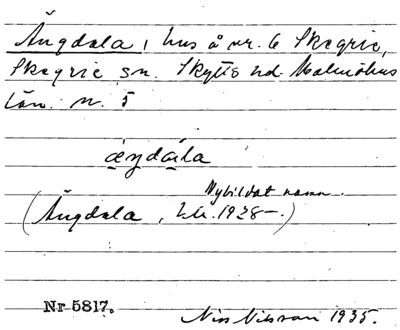 Ängdala, hus å nr. 6 Skegrie,
Skegrie sn. Skytts hd. Malmöhus
län. n. 5
äŋdála
Nybildat namn.
(Ängdala, 1928–)
Nr 5817.
Nils Nilsson 1935.